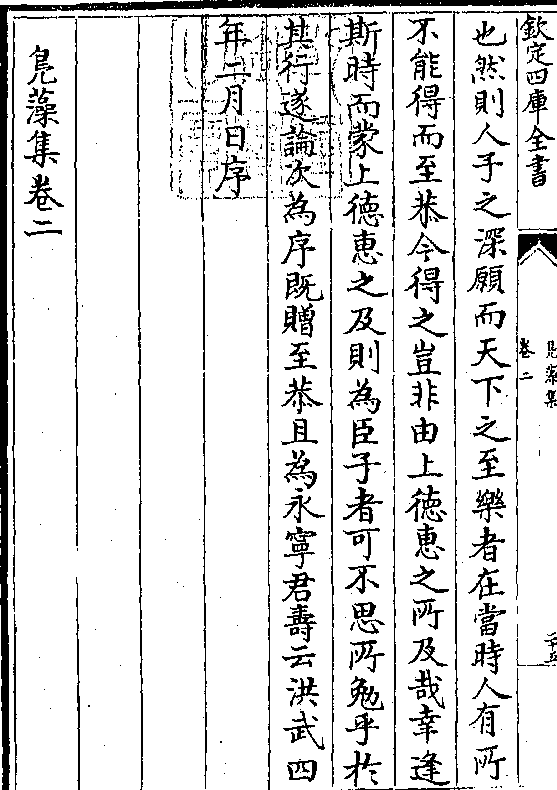 欽定四庫全書
鳧藻集
卷二
也然則人子之深願而天下之至樂者在當時人有所
不能得而至恭今得之豈非由上德惠之所及哉幸逢
斯時而蒙上德惠之及則為臣子者可不思所勉乎於
其行遂論次為序既贈至恭且為永寧君壽云洪武四
年二月日序
鳧藻集卷二